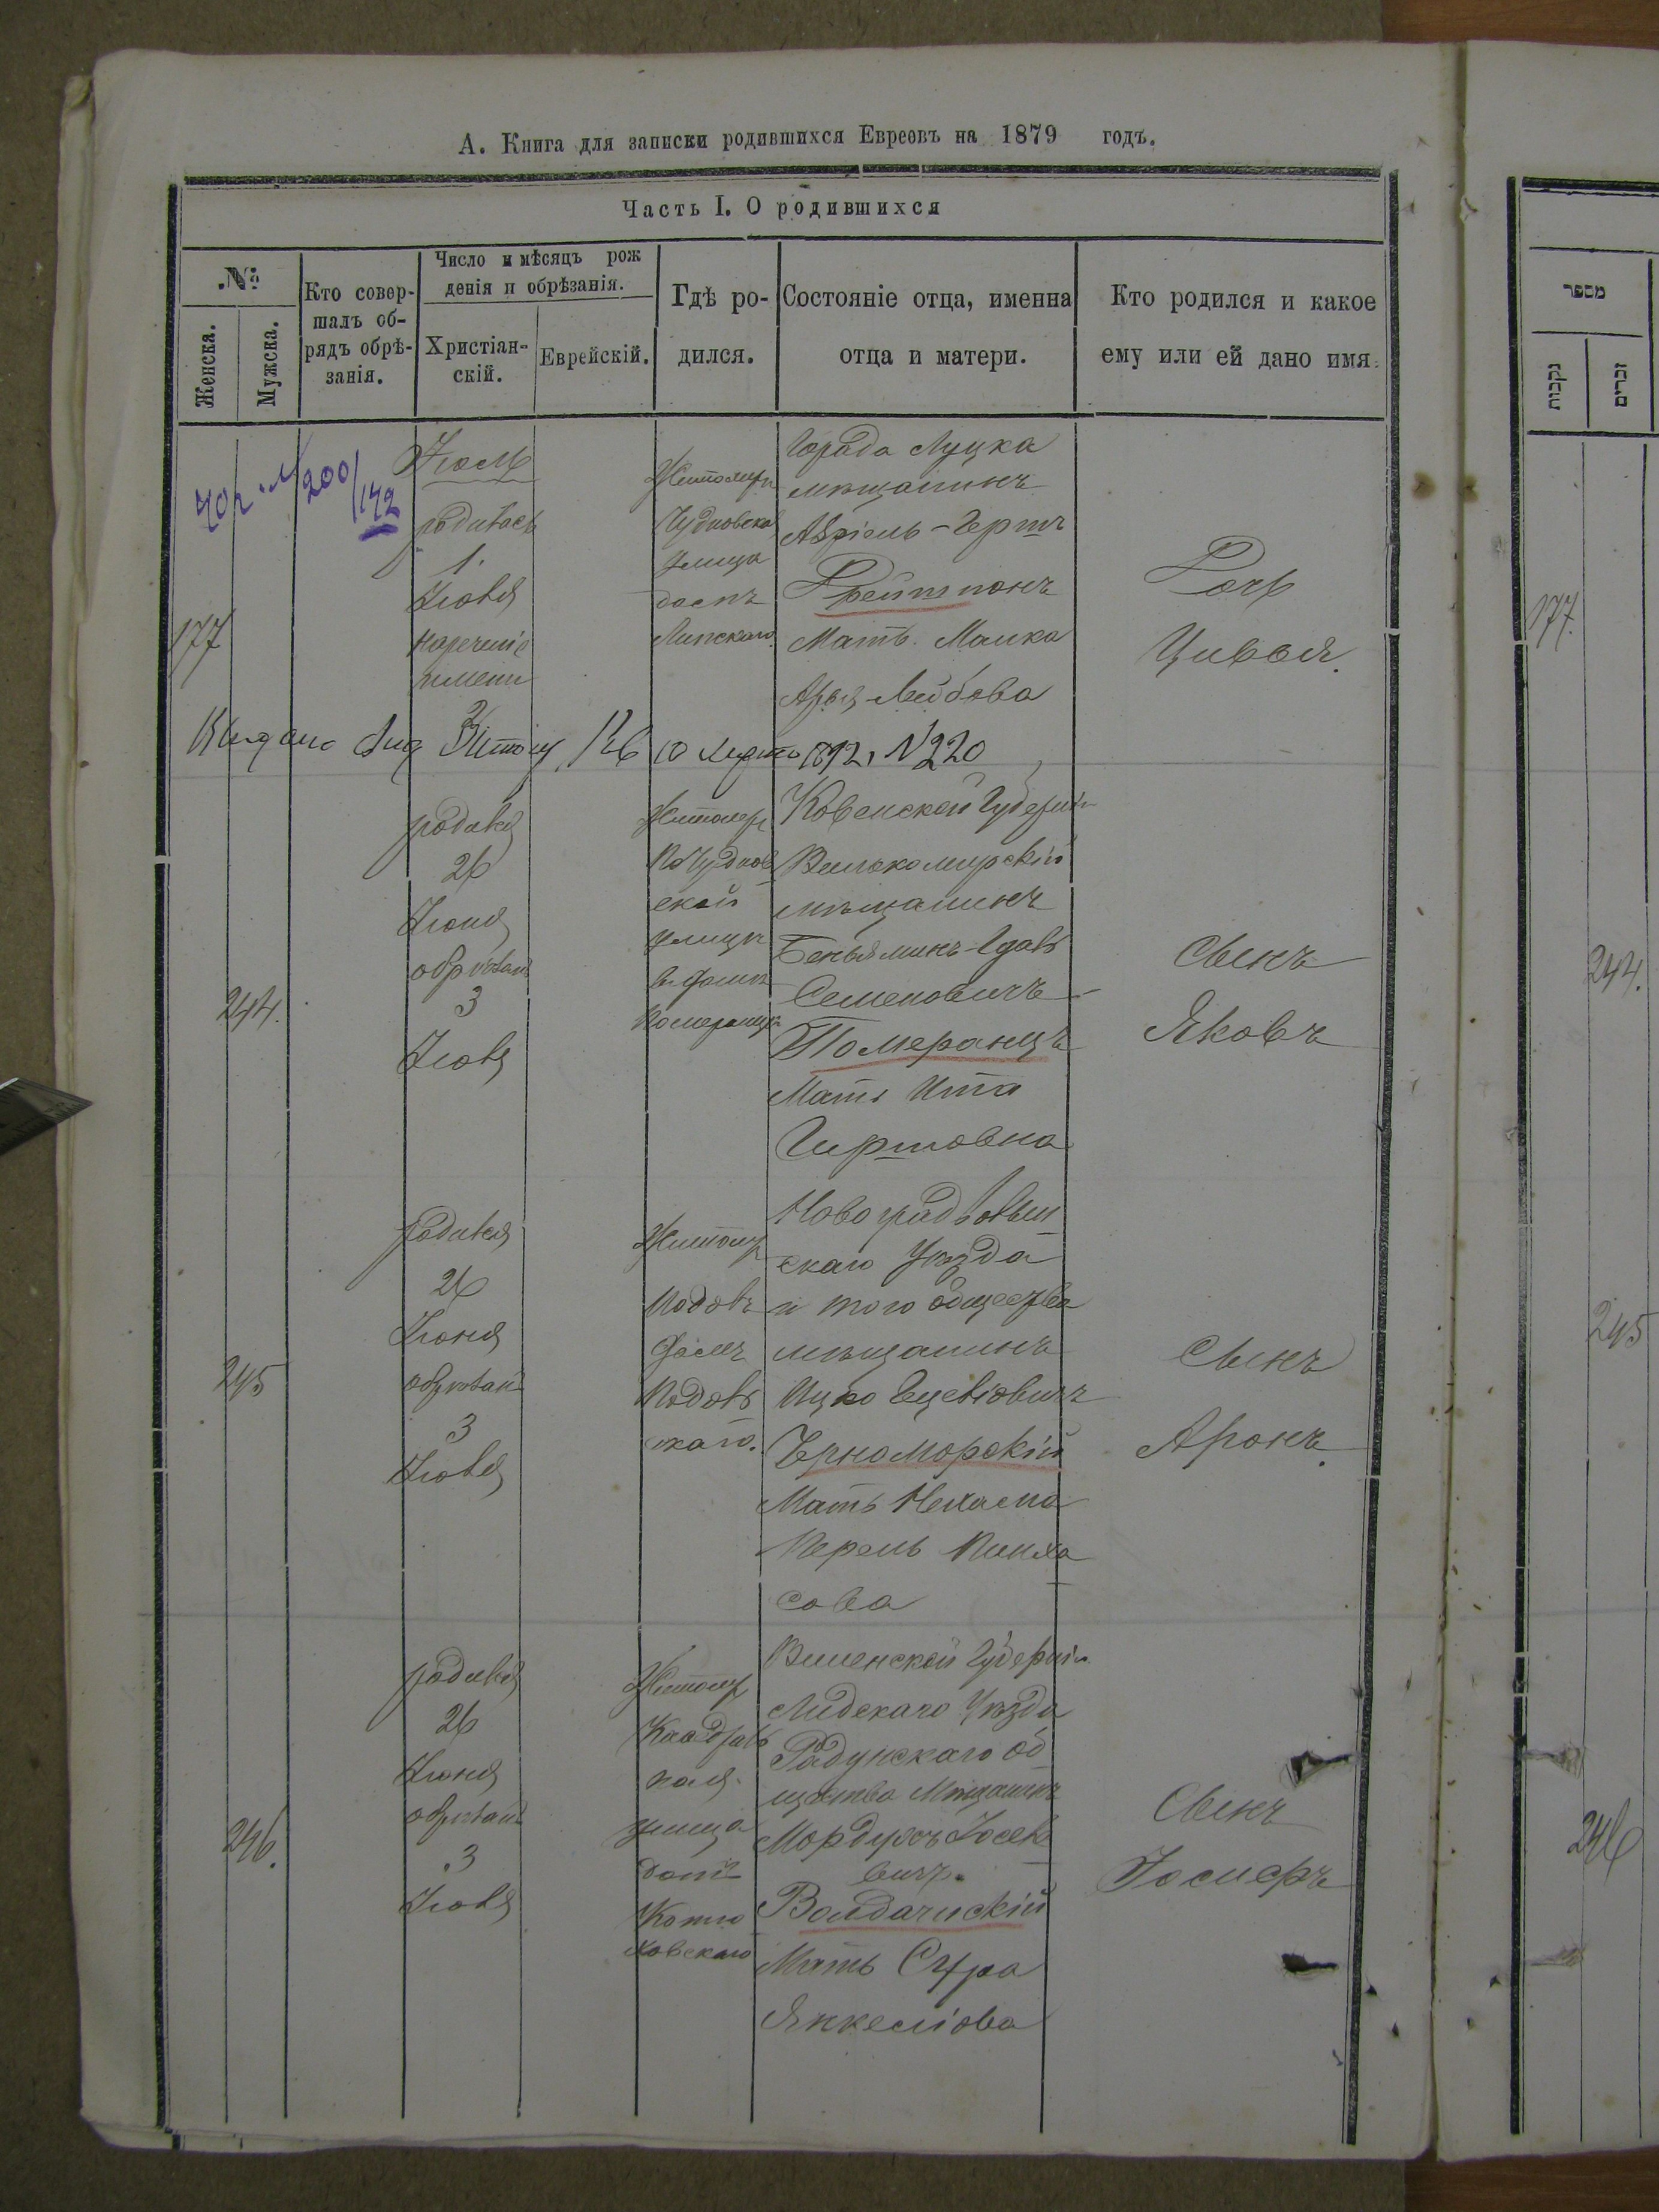 А. Книга для записки родившихся Евреовъ на 1879 годъ.
Часть I. О родившихся
№
Женска.
Мужска.
Кто совер-
шалъ об-
рядъ обрѣ-
занія.
Число и мѣсяцъ рож
денія и обрѣзанія.
Христіан-
скій.
Еврейскій.
Гдѣ ро-
дился.
Состояніе отца, именна
отца и матери.
Кто родился и какое
ему или ей дано имя.
מספר
נקבות
זכרים
200/142
177
Іюль
родилась
1.
Іюля
нареченіе
имени
3
Житомиръ
Чудновская
улица
домъ
Липскаго.
Города Луцка
мѣщанинъ
Авріель-Герш
Фрейтпонъ
Мать. Малка
Арья-Лейбова
Дочь
Цивья.
177.
Выдано 1892, № 220
244.
родился
26
Іюня
обрѣзанъ
3
Іюля
Житомиръ
По Чуднов
ской
улицѣ
в. домѣ
Померанца
Ковенской Губерніи
Вилькомирскій
мѣщанинъ
Беньяминъ-Идель
Семеновичъ
Померанцъ
Мать Ита
Гиршовна
Сынъ
Яковъ
244.
245
родился
26
Іюня
обрѣзанъ
3
Іюля
Житомир
Подолъ
домъ
Подоль
скаго.
Новоградволын
скаго Уѣзда
и того общества
мѣщанинъ
Ицко
Черноморскій
Мать Нехасма
Перель Пинха
сова
Сынъ
Аронъ.
245
246.
родился
26
Іюня
обрѣзанъ
3
Іюля
Житомир
улица
домъ
ховскаго
Виленской Губерніи
Лидскаго Уѣзда
Радунскаго об
щества Мѣщанинъ
Мордухъ Іосел
вичъ.
Волдачискій
Мать Сура
Янкеліова
Сынъ
Іосифъ
246